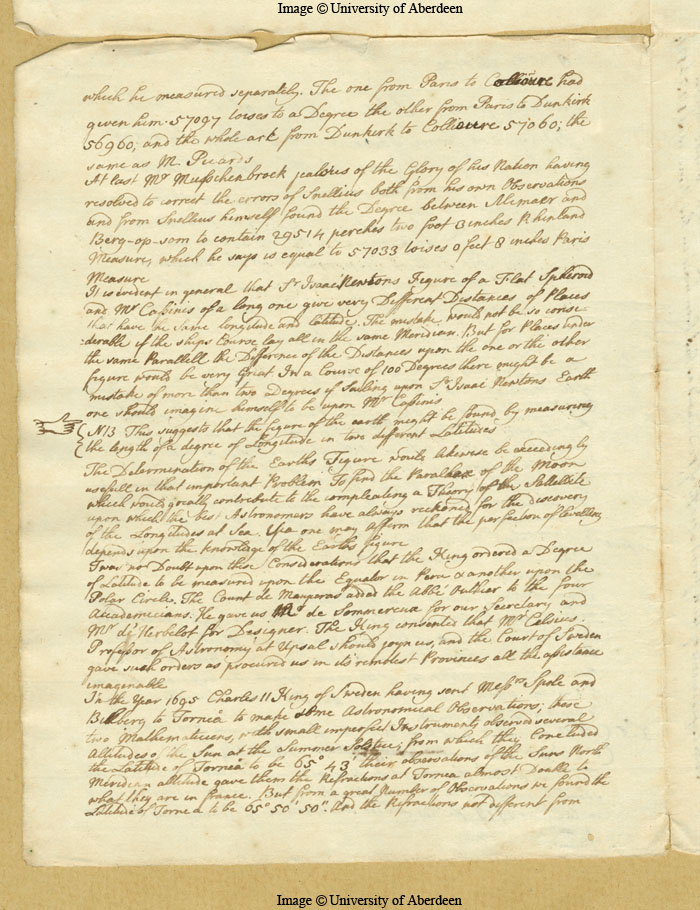 Image © University of Aberdeen
which he measured separately. The one from Paris to Collioure had
given him 57097 toises to a Degree the other from Paris to Dunkirk
56960; and the whole ark from Dunkirk to Collioure 57060; the
same as M. Picards
At last Mr Musschenbroek jealous of the Glory of his Nation having
resolved to correct the errors of Snellius both from his own Observations
and from Snellius himself found the Degree between Alcmaer and
Berg-op-som to contain 29514 perches two foot 3 inches Rhinland
Measure, which he says is equal to 57033 toises 0 feet 8 inches Paris
Measure
It is evident in general that Sr Isaac Newtons Figure of a Flat Spheroid
and Mr Cassinis of a long one give very Different Distances of Places
that have the same longitude and latitude. The mistake would not be so consi-
-derable if the ships Course lay all in the same Meridian. But for Places under
the same Parallell the Difference of the Distances upon the one or the other
figure would be very Great In a Course of 100 Degrees there might be a
mistake of more than two Degrees if Sailing upon Sr Isaac Newtons Earth
one should imagine himself to be upon Mr Cassinis
NB This suggests that the figure of the earth might be found by measuring
the length of a degree of Longitude in two different Latitudes
The Determination of the Earths Figure would likewise be exceedingly
usefull in that important Problem To find the Parallax of the Moon
which would greatly contribute to the compleating a Theory of the Satellite
upon which the best Astronomers have always reckoned for the discovery
of the Longitudes at Sea. Yea one may affirm that the perfection of levelling
depends upon the knowledge of the Earths figure
Twas no Doubt upon these Considerations that the King ordered a Degree
of Latitude to be measured upon the Equator in Peru & another upon the
Polar Circle. The Count de Maurepas added the Abbé Outhier to the four
Academicians. He gave us Mr de Sommereux for our Secretary and
Mr de Herbelot for Designer. The King consented that Mr Celsius
Professor of Astronomy at Upsal should joyn us, and the Court of Sweden
gave such orders as procured us in its remotest Provinces all the assistance
imagenable
In the Year 1695 Charles 11 King of Sweden having sent Messrs Spole and
Bilberg to Torneå to make some Astronomical Observations; these
two Mathematicians, with small imperfect Instruments, observed several
Altitudes of the Sun at the Summer Solstice; from which they Concluded
the Latitude of Torneå to be 65° 43' their observations of the Suns North
Meridian altitude gave them the Refractions at Tornea almost Double to
what they are in france. But from a great Number of Observations we found the
Latitude of Tornea to be 65° 50' 50". And the Refractions not different from
Image © University of Aberdeen